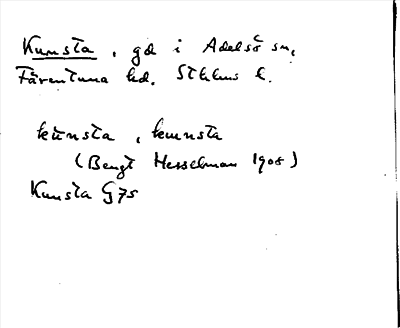 Kunsta, gd i Adelsö sn,
Färentuna hd. Sthlms l.
kũnsta, kunnsta
(Bengt Hesselman 1908)
Kunsta G75